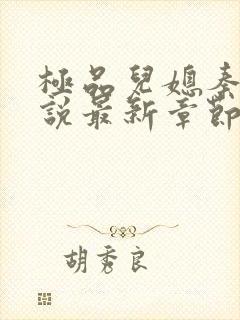 極品兒媳秦
說最新章節
胡秀良